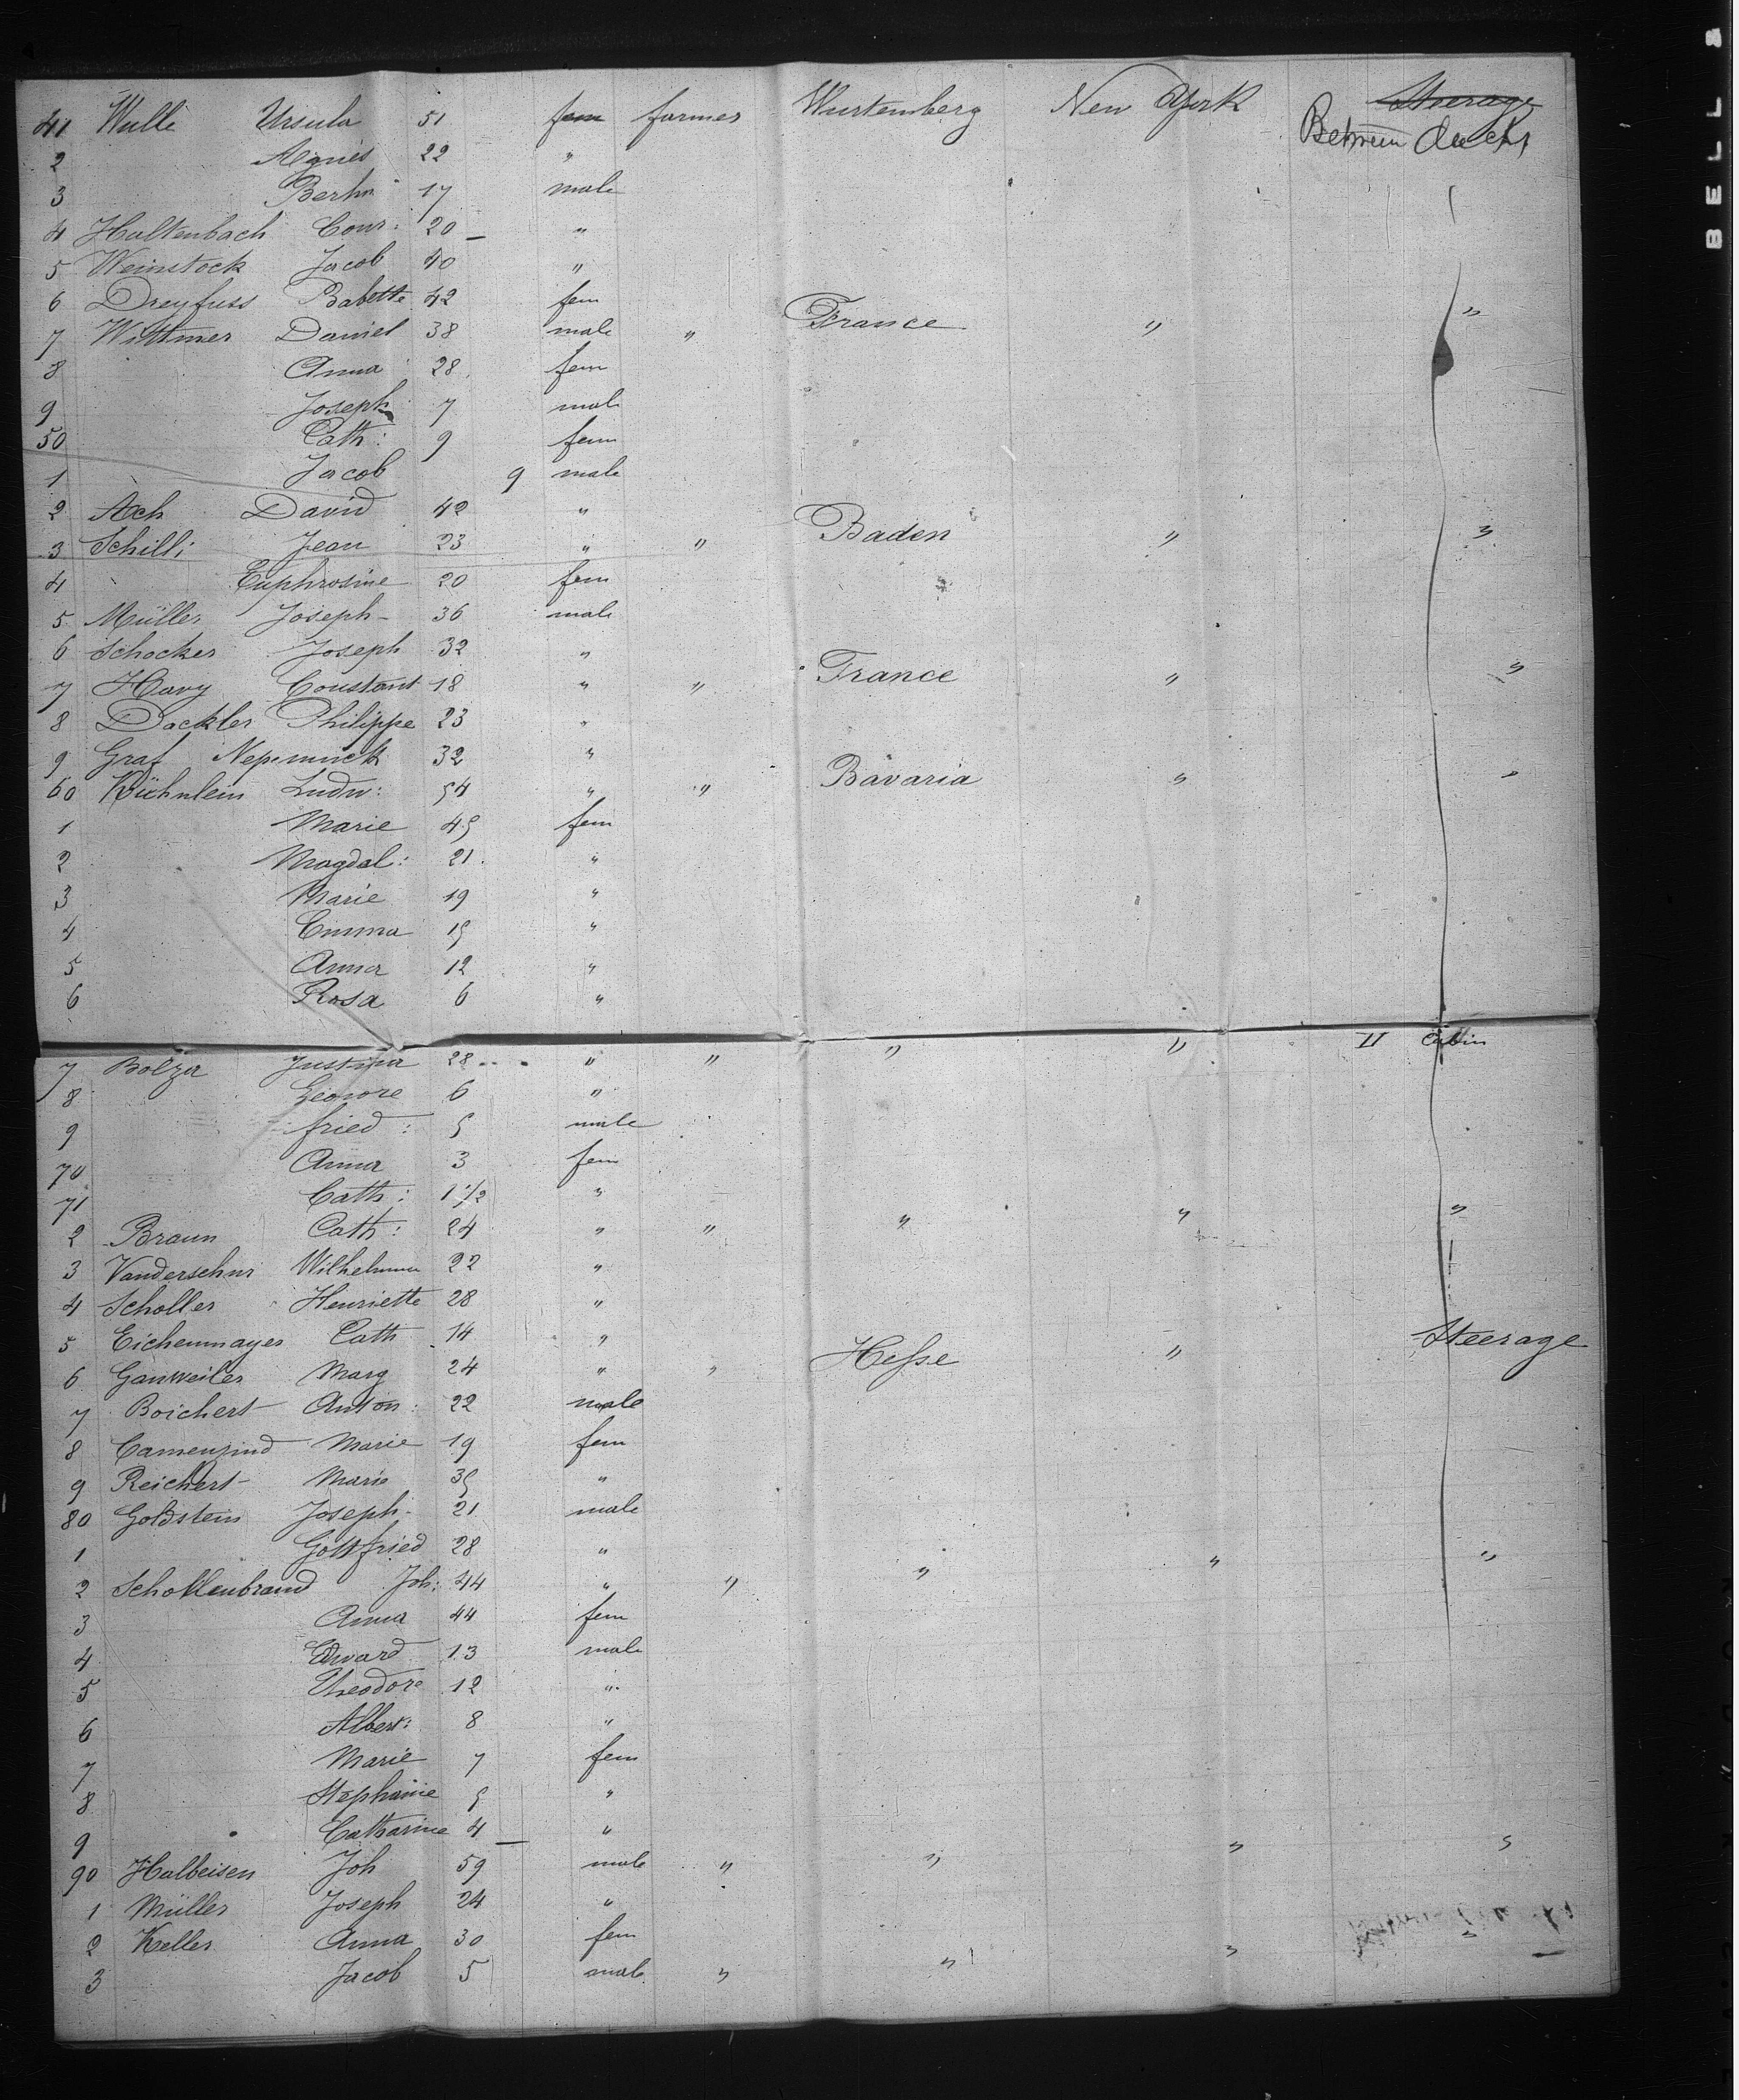 41 Wulli Ursula 51 fem farmer Wurtemberg New York Steerage
Between decks
2 Agnes 22 "
3 17 male
4 Haltenbach Conr: 20 "
5 Weinstock Jacob 40 "
6 Dreyfuss Babette 42 fem
7 Wittmer Daniel 38 male " France " "
8 Anna 28 fem
9 Joseph 7 male
50 Cath: 9 fem
1 Jacob 9 male
2 Ach David 42 "
3 Schilli Jean 23 " " Baden " "
4 Euphrosine 20 fem
5 Müller Joseph 36 male
6 Schocker Joseph 32 "
7 Havy Constant 18 " " France " "
8 Dackler Philippe 23 "
9 Graf Nepomuck 32 "
60 Kühnlein Ludw: 54 " " Bavaria " "
1 Marie 45 fem
2 Magdal: 21 "
3 Marie 19 "
4 Emma 15 "
5 Anna 12 "
6 Rosa 6 "
7 Bolza Justina 28 " " " " II Cabin
8 Leonore 6 "
9 fried: 5 male
70 Anna 3 fem
71 Cath: 1 1/2 "
2 Braun Cath: 24 " " " " "
3 Wilhelmine 22 "
4 Scholler Henriette 28 "
5 Eichenmayer Cath 14 "
6 Ganweiler Marg 24 " " Hesse " Steerage
7 Boichert Anton: 22 male
8 Camenzind Marie 19 fem
9 Reichert Marie 35 "
80 Goldstein Joseph 21 male
1 Gottfried 28 "
2 Schollenbrand Joh: 44 " " " " "
3 Anna 44 fem
4 Edward 13 male
5 Theodore 12 "
6 Albert: 8 "
7 Marie 7 fem
8 Stephanie 5 "
9 Catharine 4 "
90 Halbeisen Joh 59 male " " " "
1 Müller Joseph 24 "
2 Keller Anna 30 fem
3 Jacob 5 male " " " "
BELL &